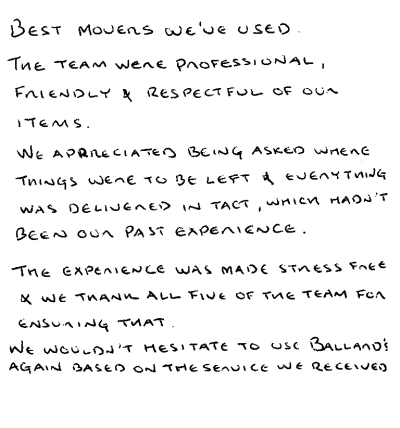 BEST MOVERS WE'VE USED.
THE TEAM WERE PROFESSIONAL,
FRIENDLY & RESPECTFUL OF OUR
ITEMS.
WE APPRECIATED BEING ASKED WHERE
THINGS WERE TO BE LEFT & EVERYTHING
WAS DELIVERED IN TACT, WHICH HADN'T
BEEN OUR PAST EXPERIENCE.
THE EXPERIENCE WAS MADE STRESS FREE
& WE THANK ALL FIVE OF THE TEAM FOR
ENSURING THAT.
WE WOULDN'T HESITATE TO USE BALLARD'S
AGAIN BASED ON THE SERVICE WE RECEIVED